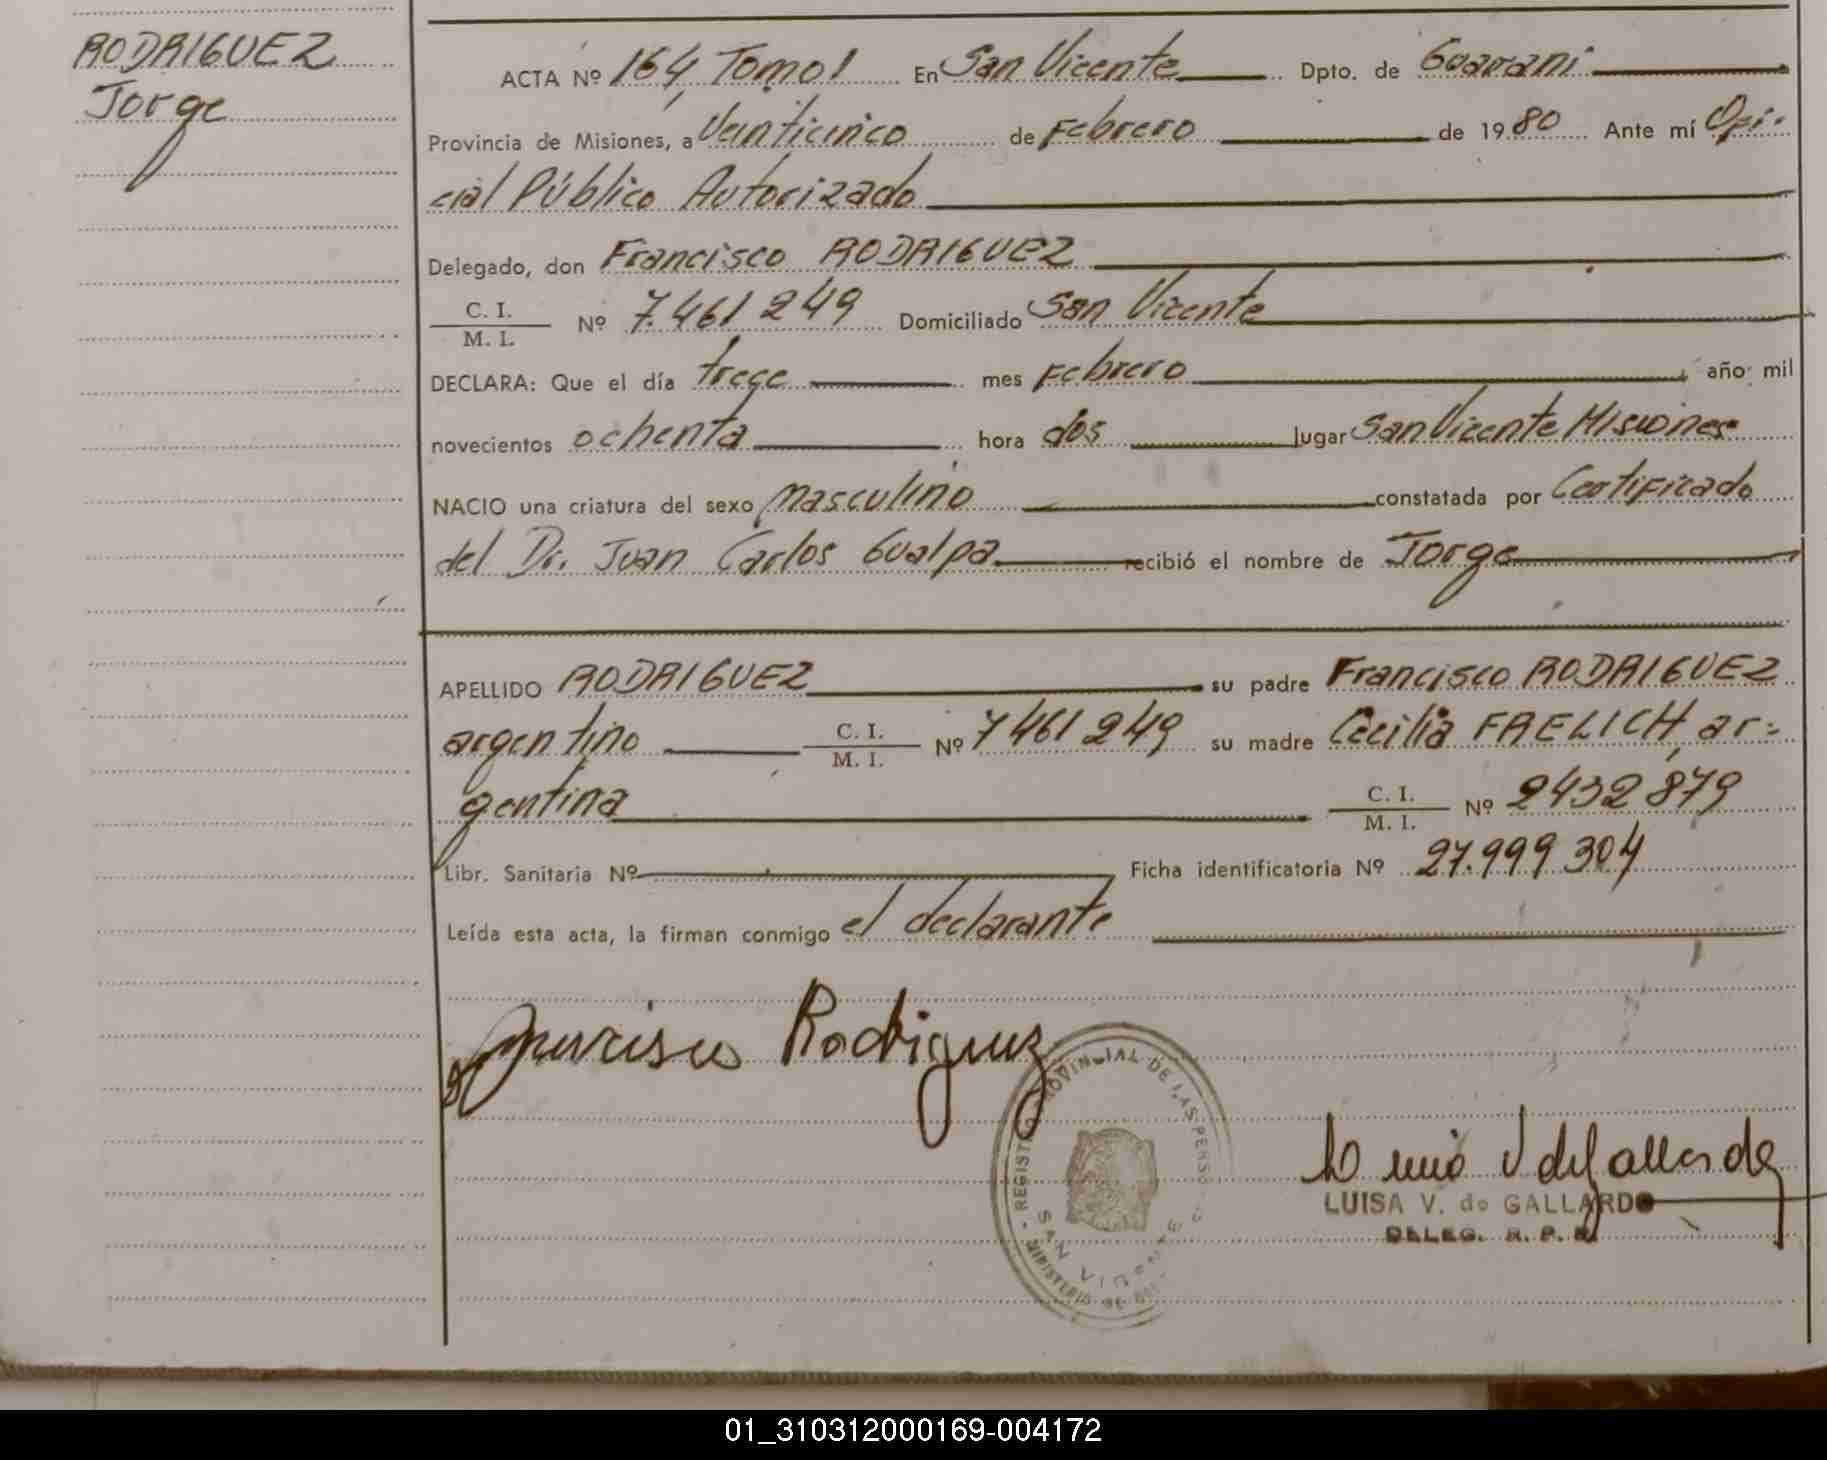 RODRIGUEZ
Jorge
ACTA Nº 164, Tomo 1 En San Vicente Dpto. de Guaraní
Provincia de Misiones, a Veinticinco de Febrero de 1980 Ante mí Ofi-
cial Público Autorizado
Delegado, don Francisco RODRIGUEZ
C. I.
M. I. Nº 7.461 249 Domiciliado San Vicente
DECLARA: Que el día trece mes Febrero año mil
novecientos ochenta hora dos lugar San Vicente Misiones
NACIO una criatura del sexo masculino constatada por Certificado
del Dr. Juan Carlos Gualpa recibió el nombre de Jorge
APELLIDO RODRIGUEZ su padre Francisco RODRIGUEZ
argentino C. I. M. I. Nº 7461 249 su madre Cecilia FRELICH, ar=
gentina C. I. M. I. Nº 2432 879
Libr. Sanitaria Nº Ficha identificatoria Nº 27.999 304
Leída esta acta, la firman conmigo el declarante
Francisco Rodriguez
REGISTRO PROVINCIAL DE LAS PERSO
SAN VICENTE
MINISTERIO DE
Luisa V de Gallardo
LUISA V. de GALLARDO
DELEG. R. P. P.
01_310312000169-004172